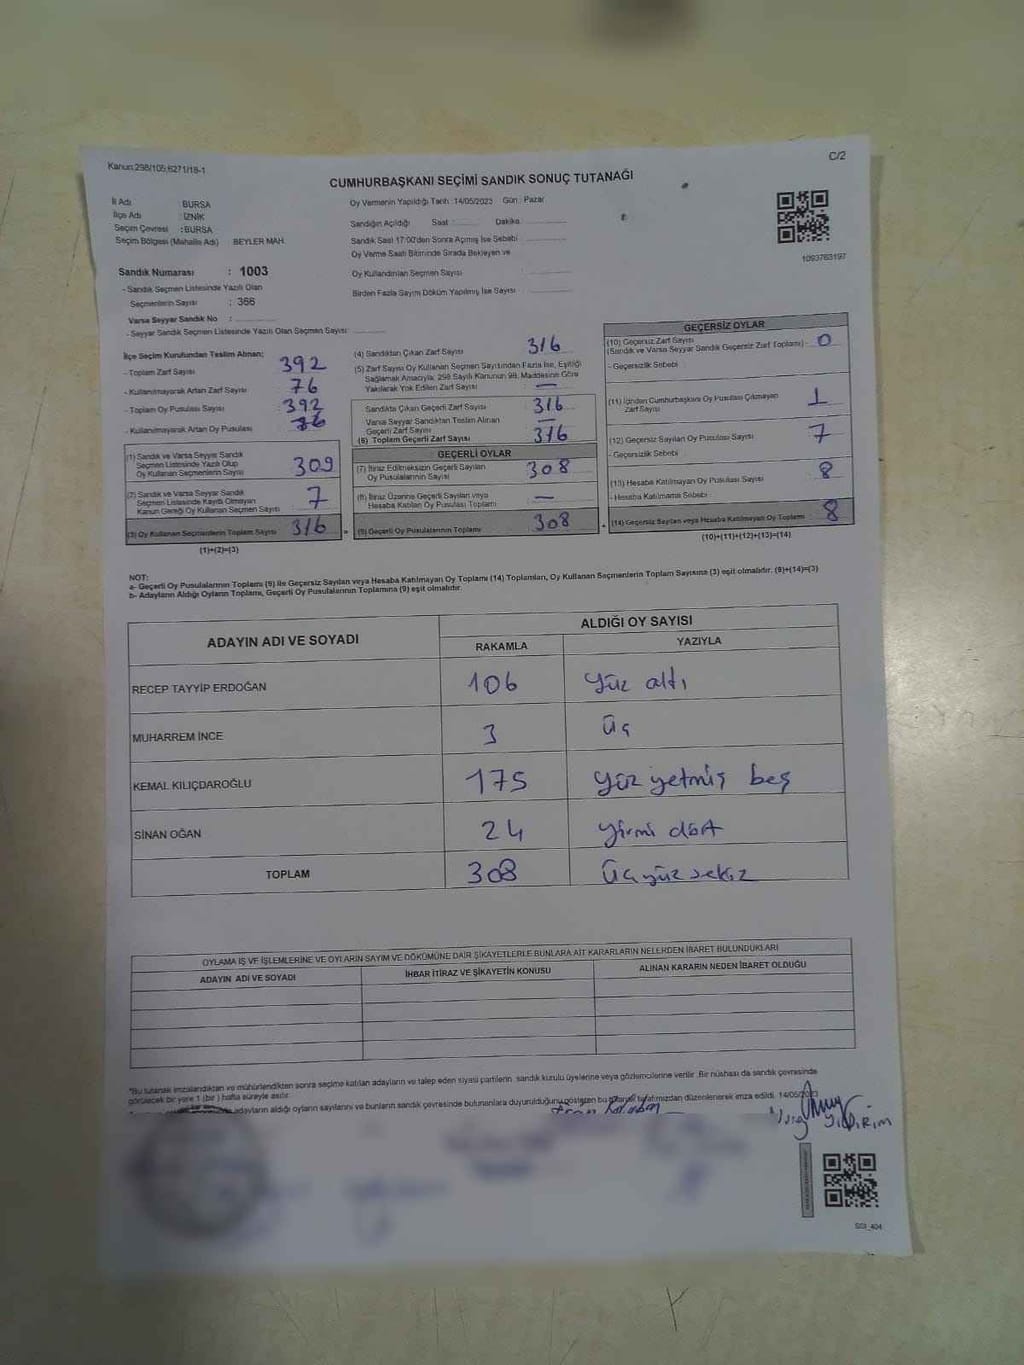 Kanun:298/105,6271/18-1
C/2
CUMHURBAŞKANI SEÇİMİ SANDIK SONUÇ TUTANAĞI
İl Adı BURSA
İlçe Adı :İZNİK
Seçim Çevresi :BURSA
Seçim Bölgesi (Mahalle Adı) BEYLER MAH.
Oy Vermenin Yapıldığı Tarih :14/05/2023 Gün : Pazar
Sandığın Açıldığı Saat : Dakika
Sandık Saat 17:00'den Sonra Açımış İse Sebebi
Oy Verme Saati Bitiminde Sırada Bekleyen ve
Oy Kullandırılan Seçmen Sayısı
Birden Fazla Sayım Döküm Yapılmış İse Sayısı
1093763197
Sandık Numarası : 1003
- Sandık Seçmen Listesinde Yazılı Olan
Seçmenlerin Sayısı : 366
Varsa Seyyar Sandık No :
- Seyyar Sandık Seçmen Listesinde Yazılı Olan Seçmen Sayısı:
İlçe Seçim Kurulundan Teslim Alınan:
- Toplam Zarf Sayısı 392
- Kullanılmayarak Artan Zarf Sayısı 76
- Toplam Oy Pusulası Sayısı 392
- Kullanılmayarak Artan Oy Pusulası 76
(1) Sandık ve Varsa Seyyar Sandık
Seçmen Listesinde Yazılı Olup
Oy Kullanan Seçmenlerin Sayısı 309
(2) Sandık ve Varsa Seyyar Sandık
Seçmen Listesinde Kayıtlı Olmayan
Kanun Gereği Oy Kullanan Seçmen Sayısı 7
(3) Oy Kullanan Seçmenlerin Toplam Sayısı 316
(1)+(2)=(3)
(4) Sandıktan Çıkan Zarf Sayısı 316
(5) Zarf Sayısı Oy Kullanan Seçmen Sayısından Fazla İse, Eşitliği
Sağlamak Amacıyla, 298 Sayılı Kanunun 98. Maddesine Göre
Yakılarak Yok Edilen Zarf Sayısı —
Sandıkta Çıkan Geçerli Zarf Sayısı 316
Varsa Seyyar Sandıktan Teslim Alınan
Geçerli Zarf Sayısı —
(6) Toplam Geçerli Zarf Sayısı 316
GEÇERLİ OYLAR
(7) İtiraz Edilmeksizin Geçerli Sayılan
Oy Pusulalarının Sayısı 308
(8) İtiraz Üzerine Geçerli Sayılan veya
Hesaba Katılan Oy Pusulası Toplamı —
(9) Geçerli Oy Pusulalarının Toplamı 308
GEÇERSİZ OYLAR
(10) Geçersiz Zarf Sayısı
(Sandık ve Varsa Seyyar Sandık Geçersiz Zarf Toplamı) 0
- Geçersizlik Sebebi
(11) İçinden Cumhurbaşkanı Oy Pusulası Çıkmayan
Zarf Sayısı 1
(12) Geçersiz Sayılan Oy Pusulası Sayısı 7
- Geçersizlik Sebebi
(13) Hesaba Katılmayan Oy Pusulası Sayısı 8
- Hesaba Katılmama Sebebi
(14) Geçersiz Sayılan veya Hesaba Katılmayan Oy Toplamı 8
(10)+(11)+(12)+(13)=(14)
NOT:
a- Geçerli Oy Pusulalarının Toplamı (9) ile Geçersiz Sayılan veya Hesaba Katılmayan Oy Toplamı (14) Toplamları, Oy Kullanan Seçmenlerin Toplam Sayısına (3) eşit olmalıdır. (9)+(14)=(3)
b- Adayların Aldığı Oyların Toplamı, Geçerli Oy Pusulalarının Toplamına (9) eşit olmalıdır.
ADAYIN ADI VE SOYADI ALDIĞI OY SAYISI
RAKAMLA YAZIYLA
RECEP TAYYİP ERDOĞAN 106 Yüz altı
MUHARREM İNCE 3 Üç
KEMAL KILIÇDAROĞLU 175 Yüz yetmiş beş
SİNAN OĞAN 24 Yirmi dört
TOPLAM 308 Üçyüz sekiz
OYLAMA İŞ VE İŞLEMLERİNE VE OYLARIN SAYIM VE DÖKÜMÜNE DAİR ŞİKAYETLERLE BUNLARA AİT KARARLARIN NELERDEN İBARET BULUNDUKLARI
ADAYIN ADI VE SOYADI İHBAR İTİRAZ VE ŞİKAYETİN KONUSU ALINAN KARARIN NEDEN İBARET OLDUĞU
*Bu tutanak imzalandıktan ve mühürlendikten sonra seçime katılan adayların ve talep eden siyasi partilerin sandık kurulu üyelerine veya gözlemcilerine verilir .Bir nüshası da sandık çevresinde
görülecek bir yere 1 (bir ) hafta süreyle asılır.
adayların aldığı oyların sayılarını ve bunların sandık çevresinde bulunanlara duyurulduğunu gösteren bu tutanak tarafımızdan düzenlenerek imza edildi. 14/05/2023
YILDIRIM
S03_404